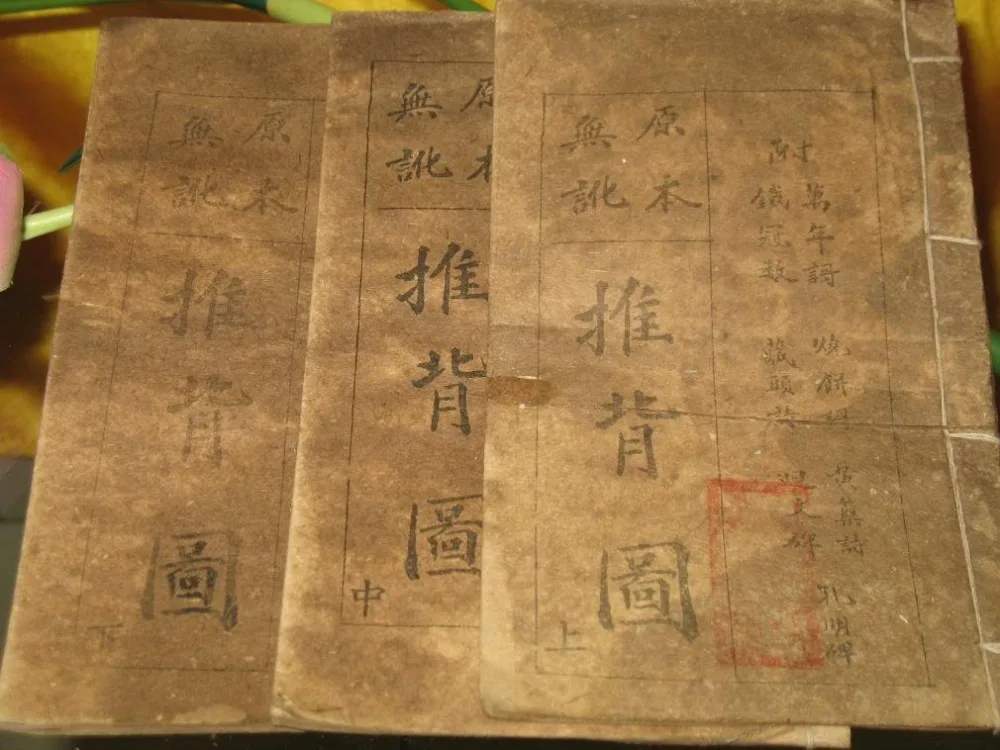 附
萬年謌 燒餅謌 黃蘗詩 孔明碑
鐵冠數 藏頭詩 建文碑
原本
無訛
推背圖
上
原本
無訛
推背圖
中
原本
無訛
推背圖
下